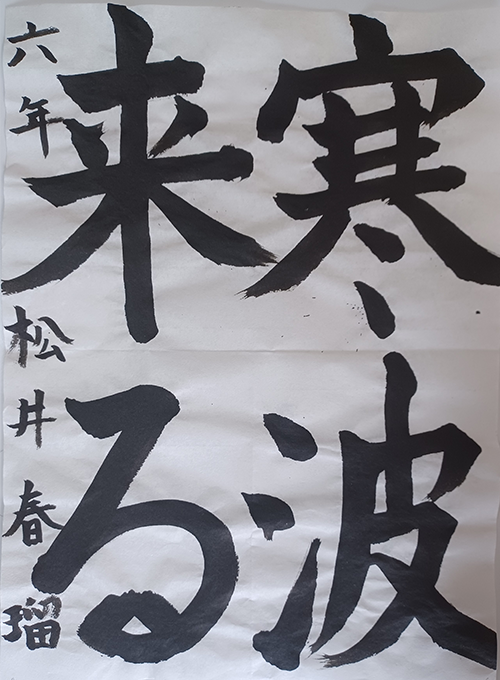 寒波
来る
六年 松井春瑠